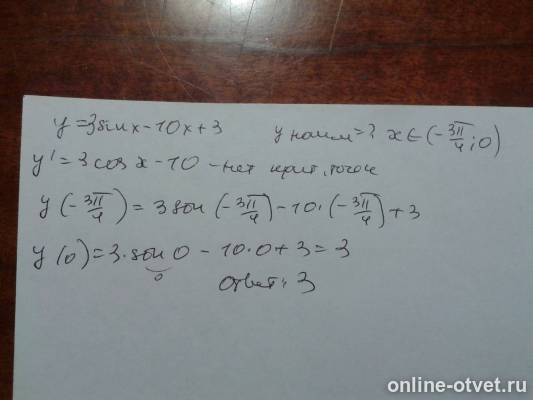 y=3sinx-10x+3 y наим=? x∈(-3π/4;0)
y'=3cosx-10-нет крит. точек
y(-3π/4)=3sin(-3π/4)-10·(-3π/4)+3
y(0)=3·sin0-10·0+3=3
0
Ответ: 3
online-otvet.ru